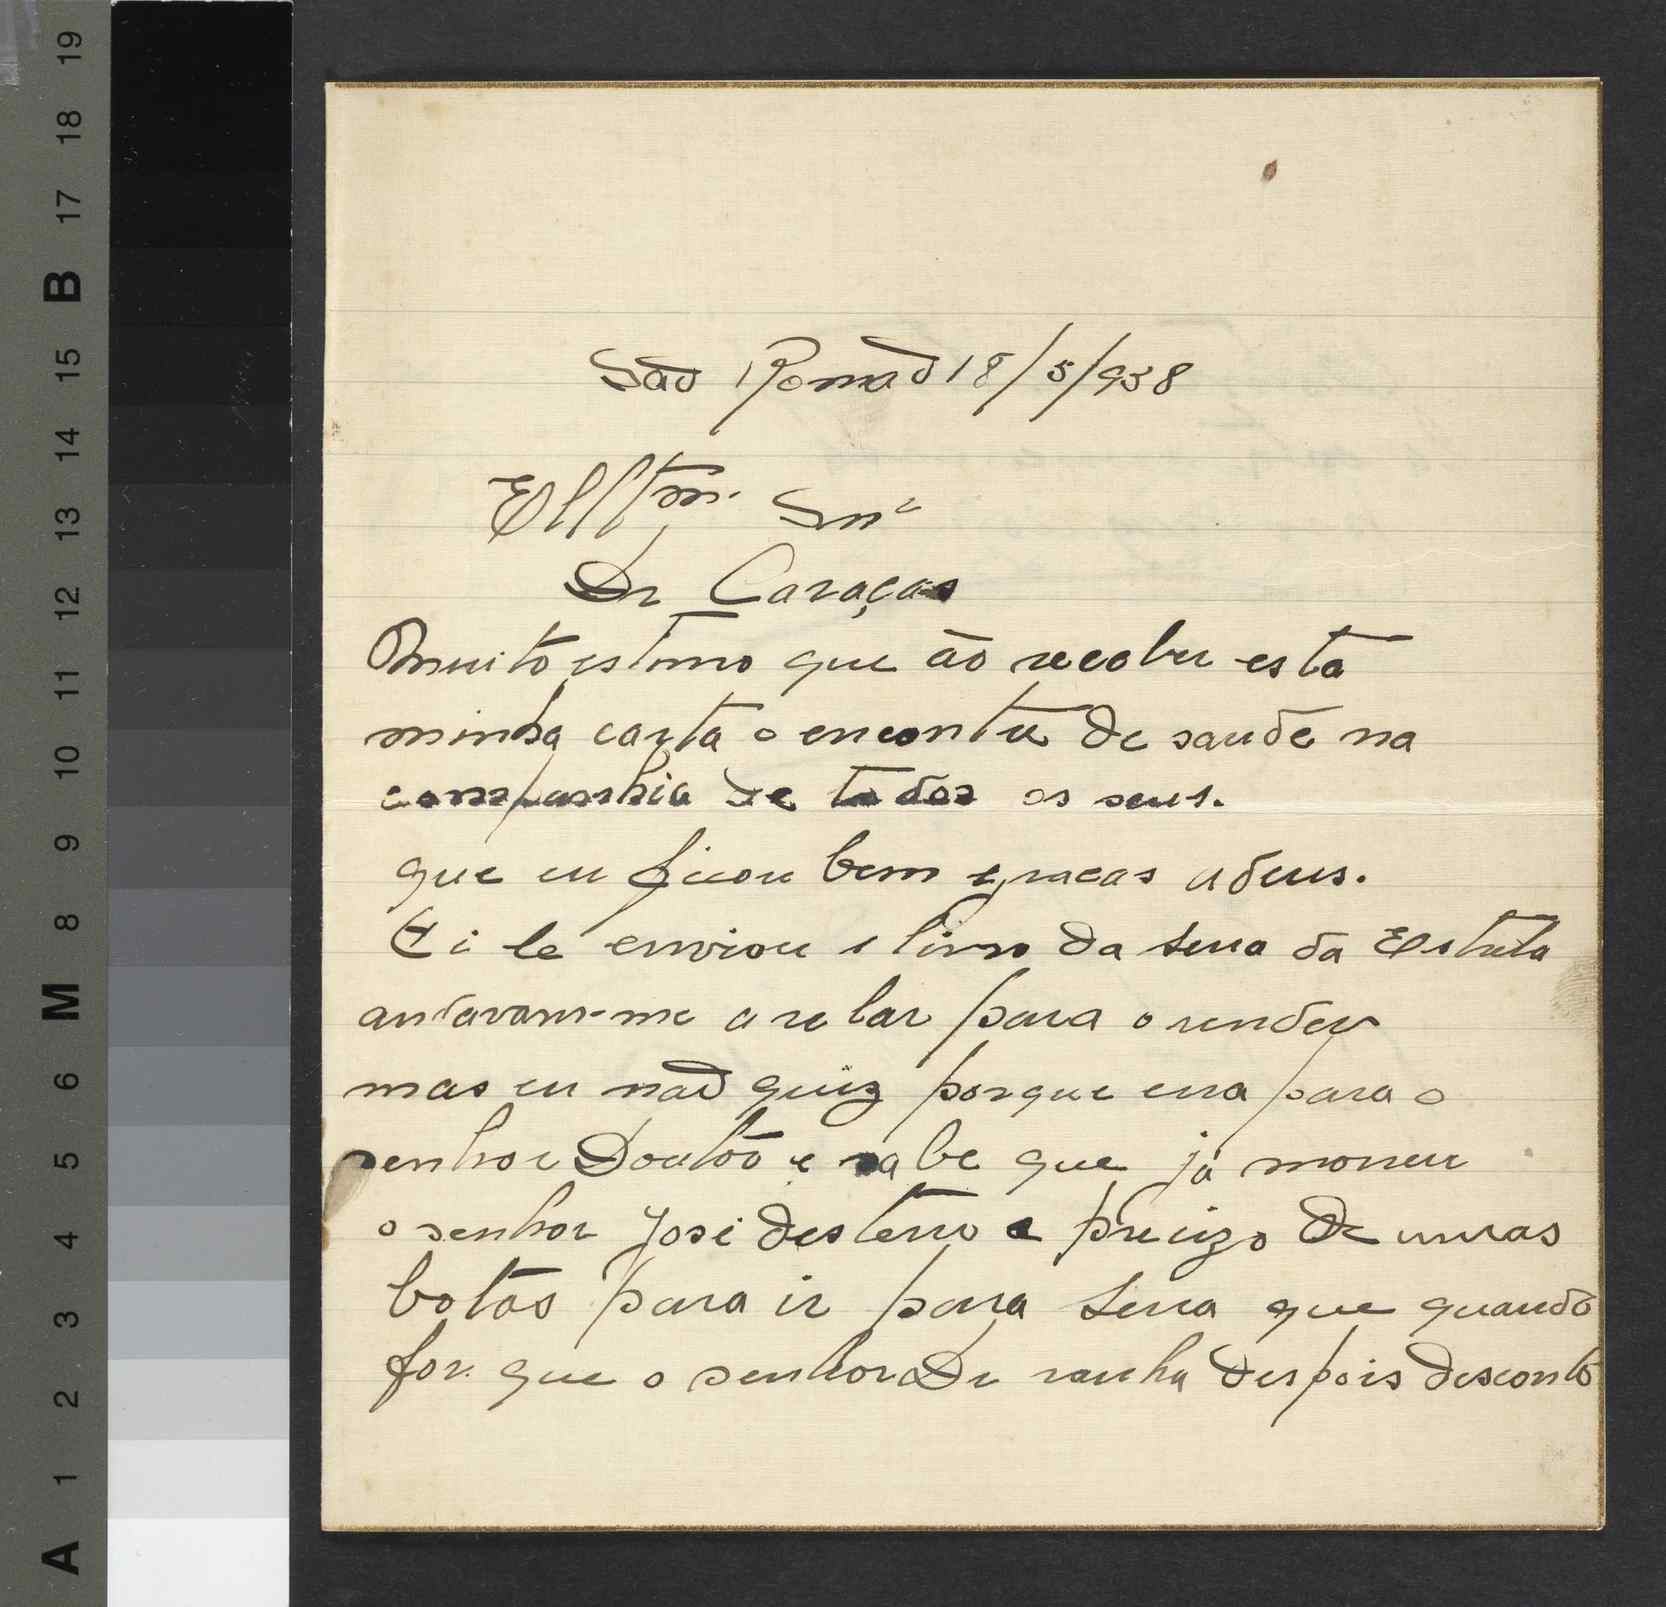 São Romão 18/5/938
Elltmo. Snr
Dr Caraças
Muito estimo que ão receber esta
minha carta o encontre de saude na
companhia de todos os seus.
que eu ficou bem gracas a deus.
Ei le enviou o livro da serra da Estrela
andavam-me a relar para o render
mas eu não quiz porque erra para o
senhor Doutor e sabe que já morreu
o senhor José desterro e preuizo de umas
botas para ir para serra que quando
for que o senhor Dr ranha despois desconto
19
18
17
B
15
14
13
12
11
10
9
8
M
6
5
4
3
2
1
A